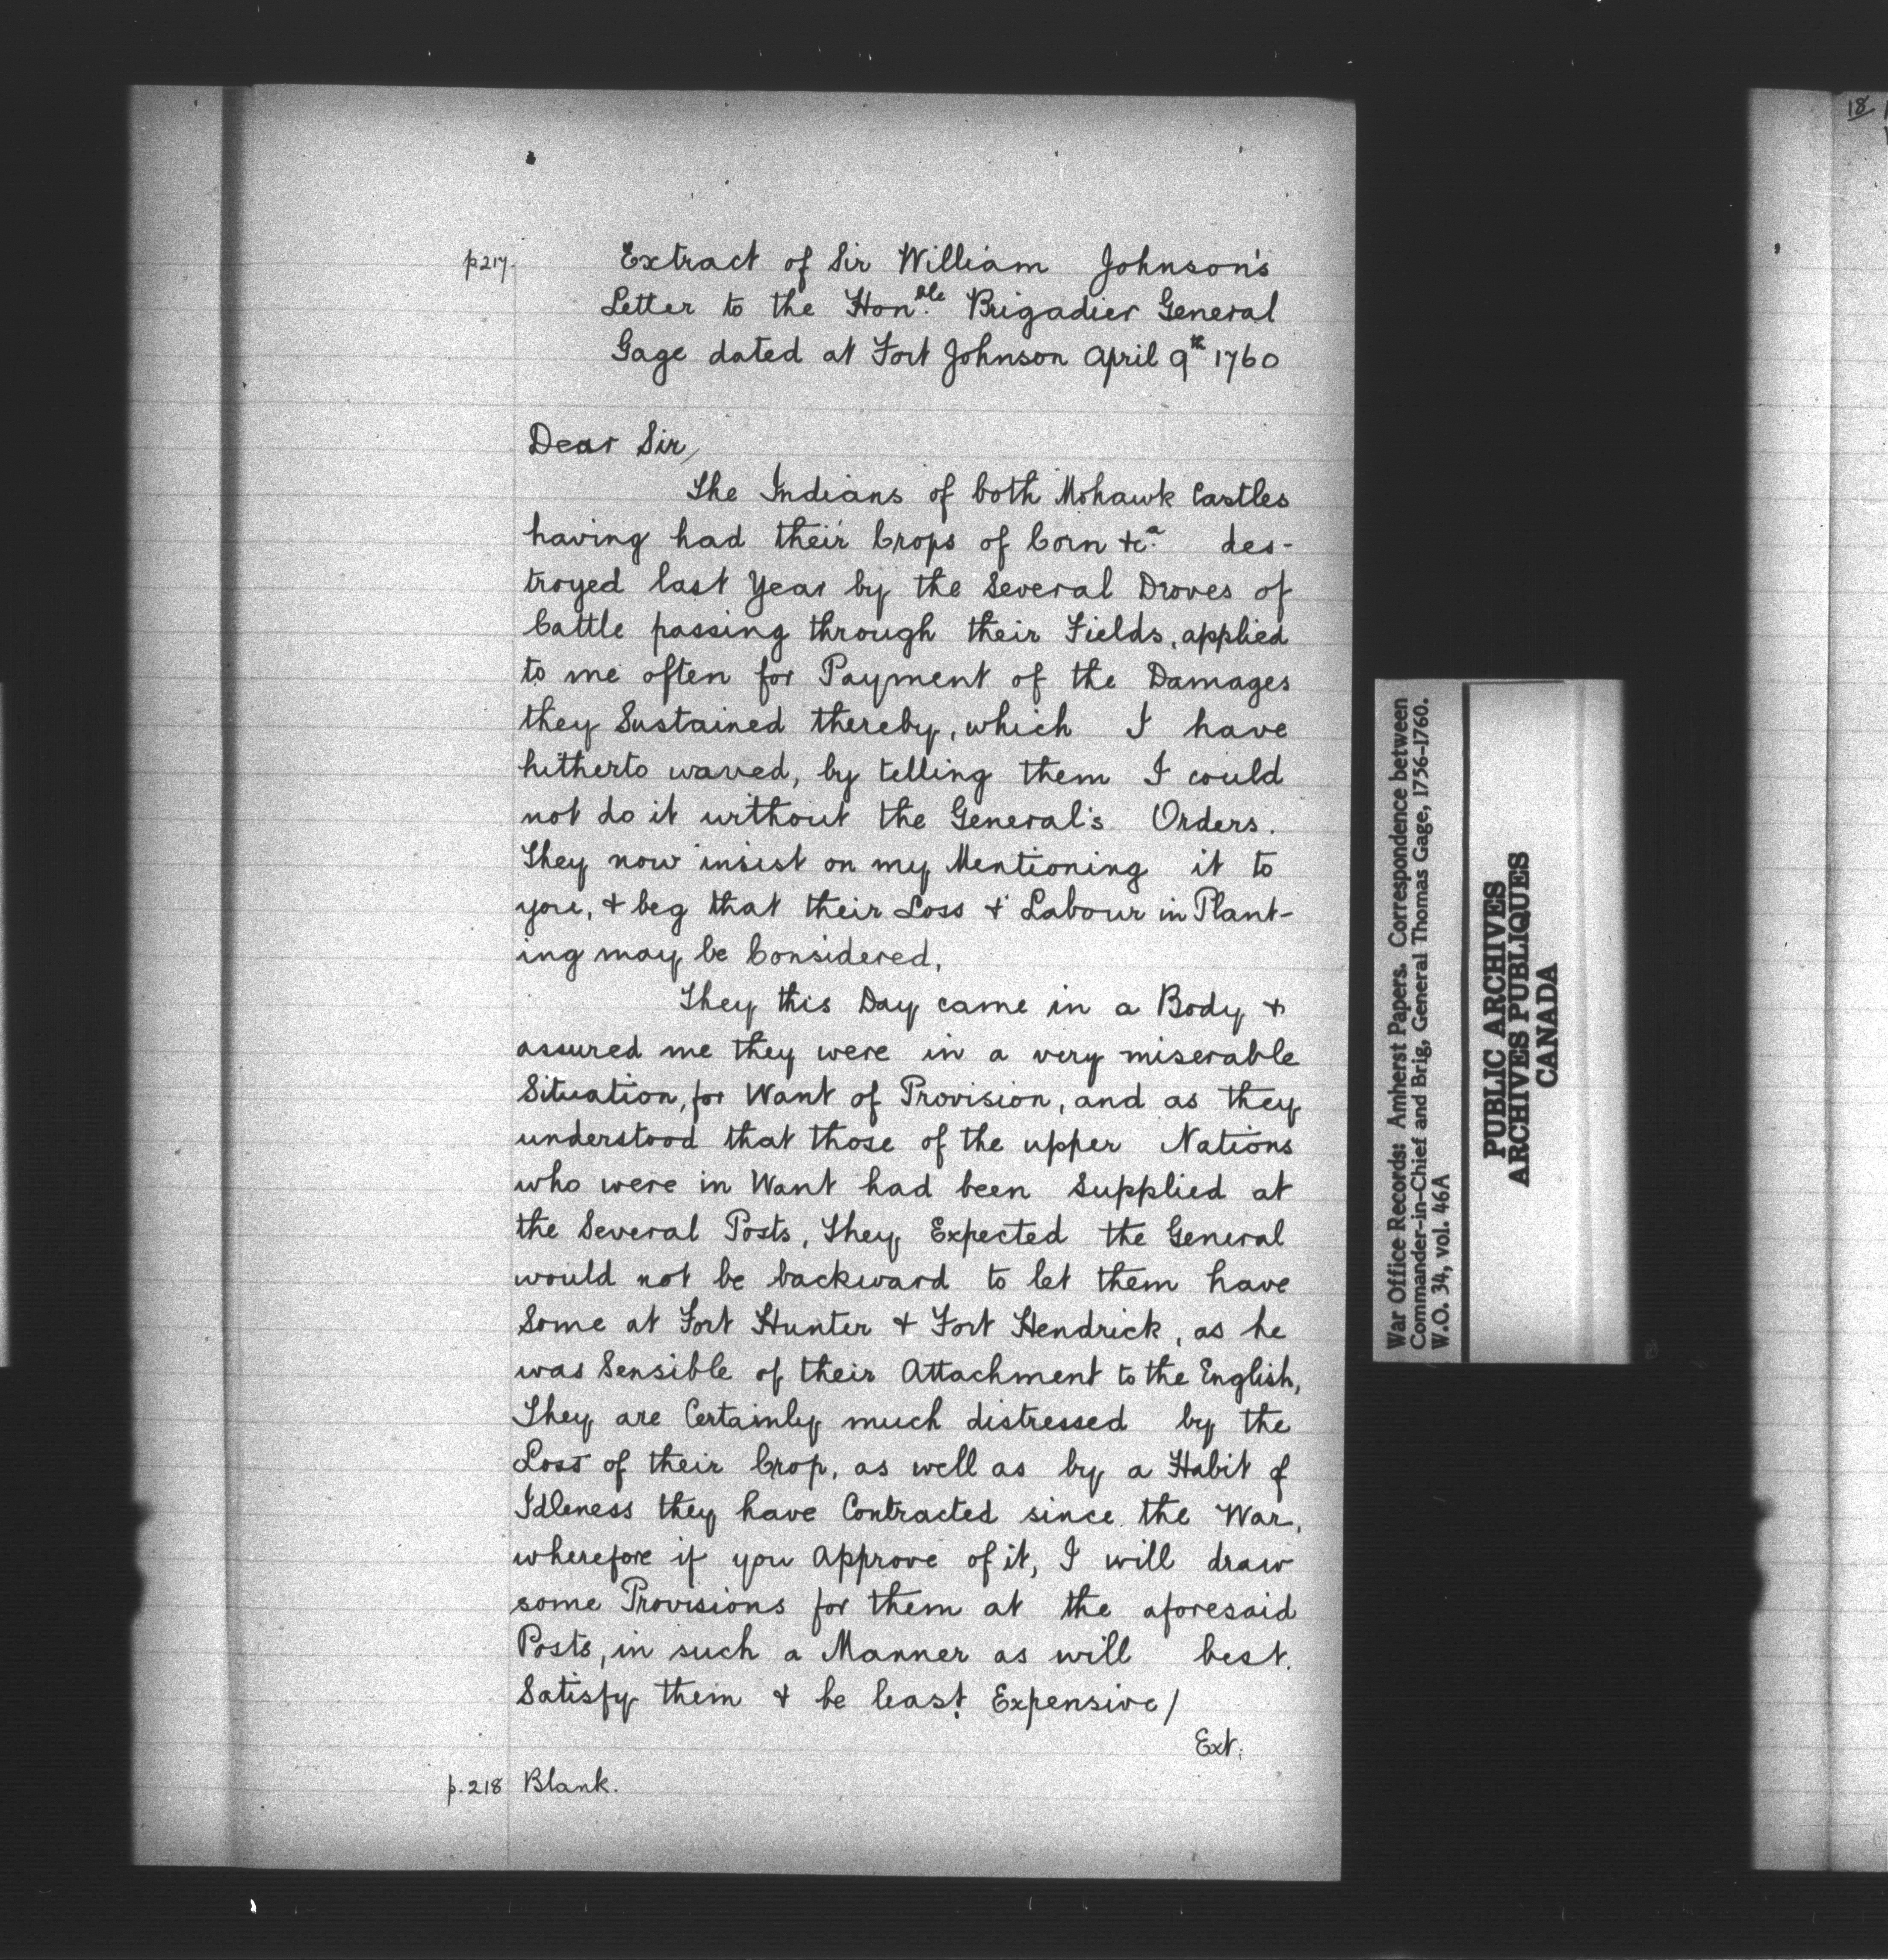 p217.
Extract of Sir William Johnson's
Letter to the Hon.ble Brigadier General
Gage dated at Fort Johnson April 9th 1760
Dear Sir,
The Indians of both Mohawk Castles
having had their Crops of Corn &c.a des-
troyed last Year by the Several Droves of
Cattle passing through their Fields, applied
to me often for Payment of the Damages
they Sustained thereby, which I have
hitherto waved, by telling them I could
not do it without the General's Orders.
They now insist on my Mentioning it to
you, & beg that their Loss & Labour in Plant-
ing may be Considered,
They this Day came in a Body &
assured me they were in a very miserable
Situation, for Want of Provision, and as they
understood that those of the upper Nations
who were in Want had been Supplied at
the Several Posts, They Expected the General
would not be backward to let them have
Some at Fort Hunter & Fort Hendrick, as he
was Sensible of their Attachment to the English,
They are Certainly much distressed by the
Loss of their Crop, as well as by a Habit of
Idleness they have Contracted since the War,
wherefore if you Approve of it, I will draw
some Provisions for them at the aforesaid
Posts, in such a Manner as will best
Satisfy them & be least Expensive/
Ext:
p.218 Blank.
War Office Records: Amherst Papers. Correspondence between
Commander-in-Chief and Brig, General Thomas Gage, 1756-1760.
W.O. 34, vol. 46A
PUBLIC ARCHIVES
ARCHIVES PUBLIQUES
CANADA
18